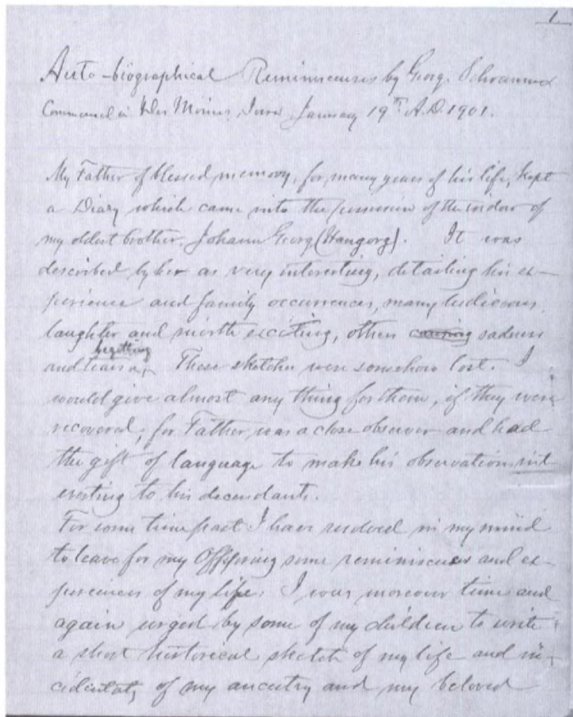 1
Auto-biographical Reminiscenses by Georg. Schramm
Commenced in Des Moines, Iowa, January 19th A.D. 1901.
My Father of blessed memory, for many years of his life, kept
a Diary which came into the possession of the widow of
my oldest brother, Johann Georg (Hangorg). It was
described by her as very interesting, detailing his ex-
perience and family occurrences, many ludicrous,
laughter and mirth exciting, others causing sadness
begetting
and tears. These sketches were somehow lost. I
would give almost any thing for them, if they were
recovered, for Father, was a close observer and had
the gift of language to make his observations int
eresting to his decendants.
For some time past I have resolved in my mind
to leave for my Offspring some reminiscenses and ex-
periences of my life. I was moreover time and
again urged by some of my children to write
a short historical sketch of my life and in-
cidentaly of my ancestry and my beloved